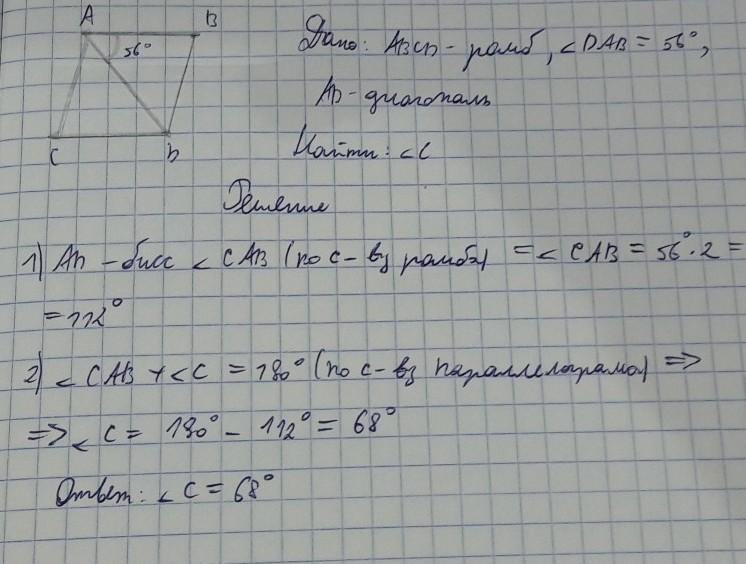 A B
56°
C D
Дано: ABCD - ромб, ∠DAB = 56°,
AD - диагональ
Найти: ∠C
Решение
1) AD - бисс ∠ CAB (по с-ву ромба) = ∠ CAB = 56° · 2 =
= 112°
2) ∠ CAB + ∠C = 180° (по с-ву параллелограма) =>
=> ∠ C = 180° - 112° = 68°
Ответ: ∠ C = 68°